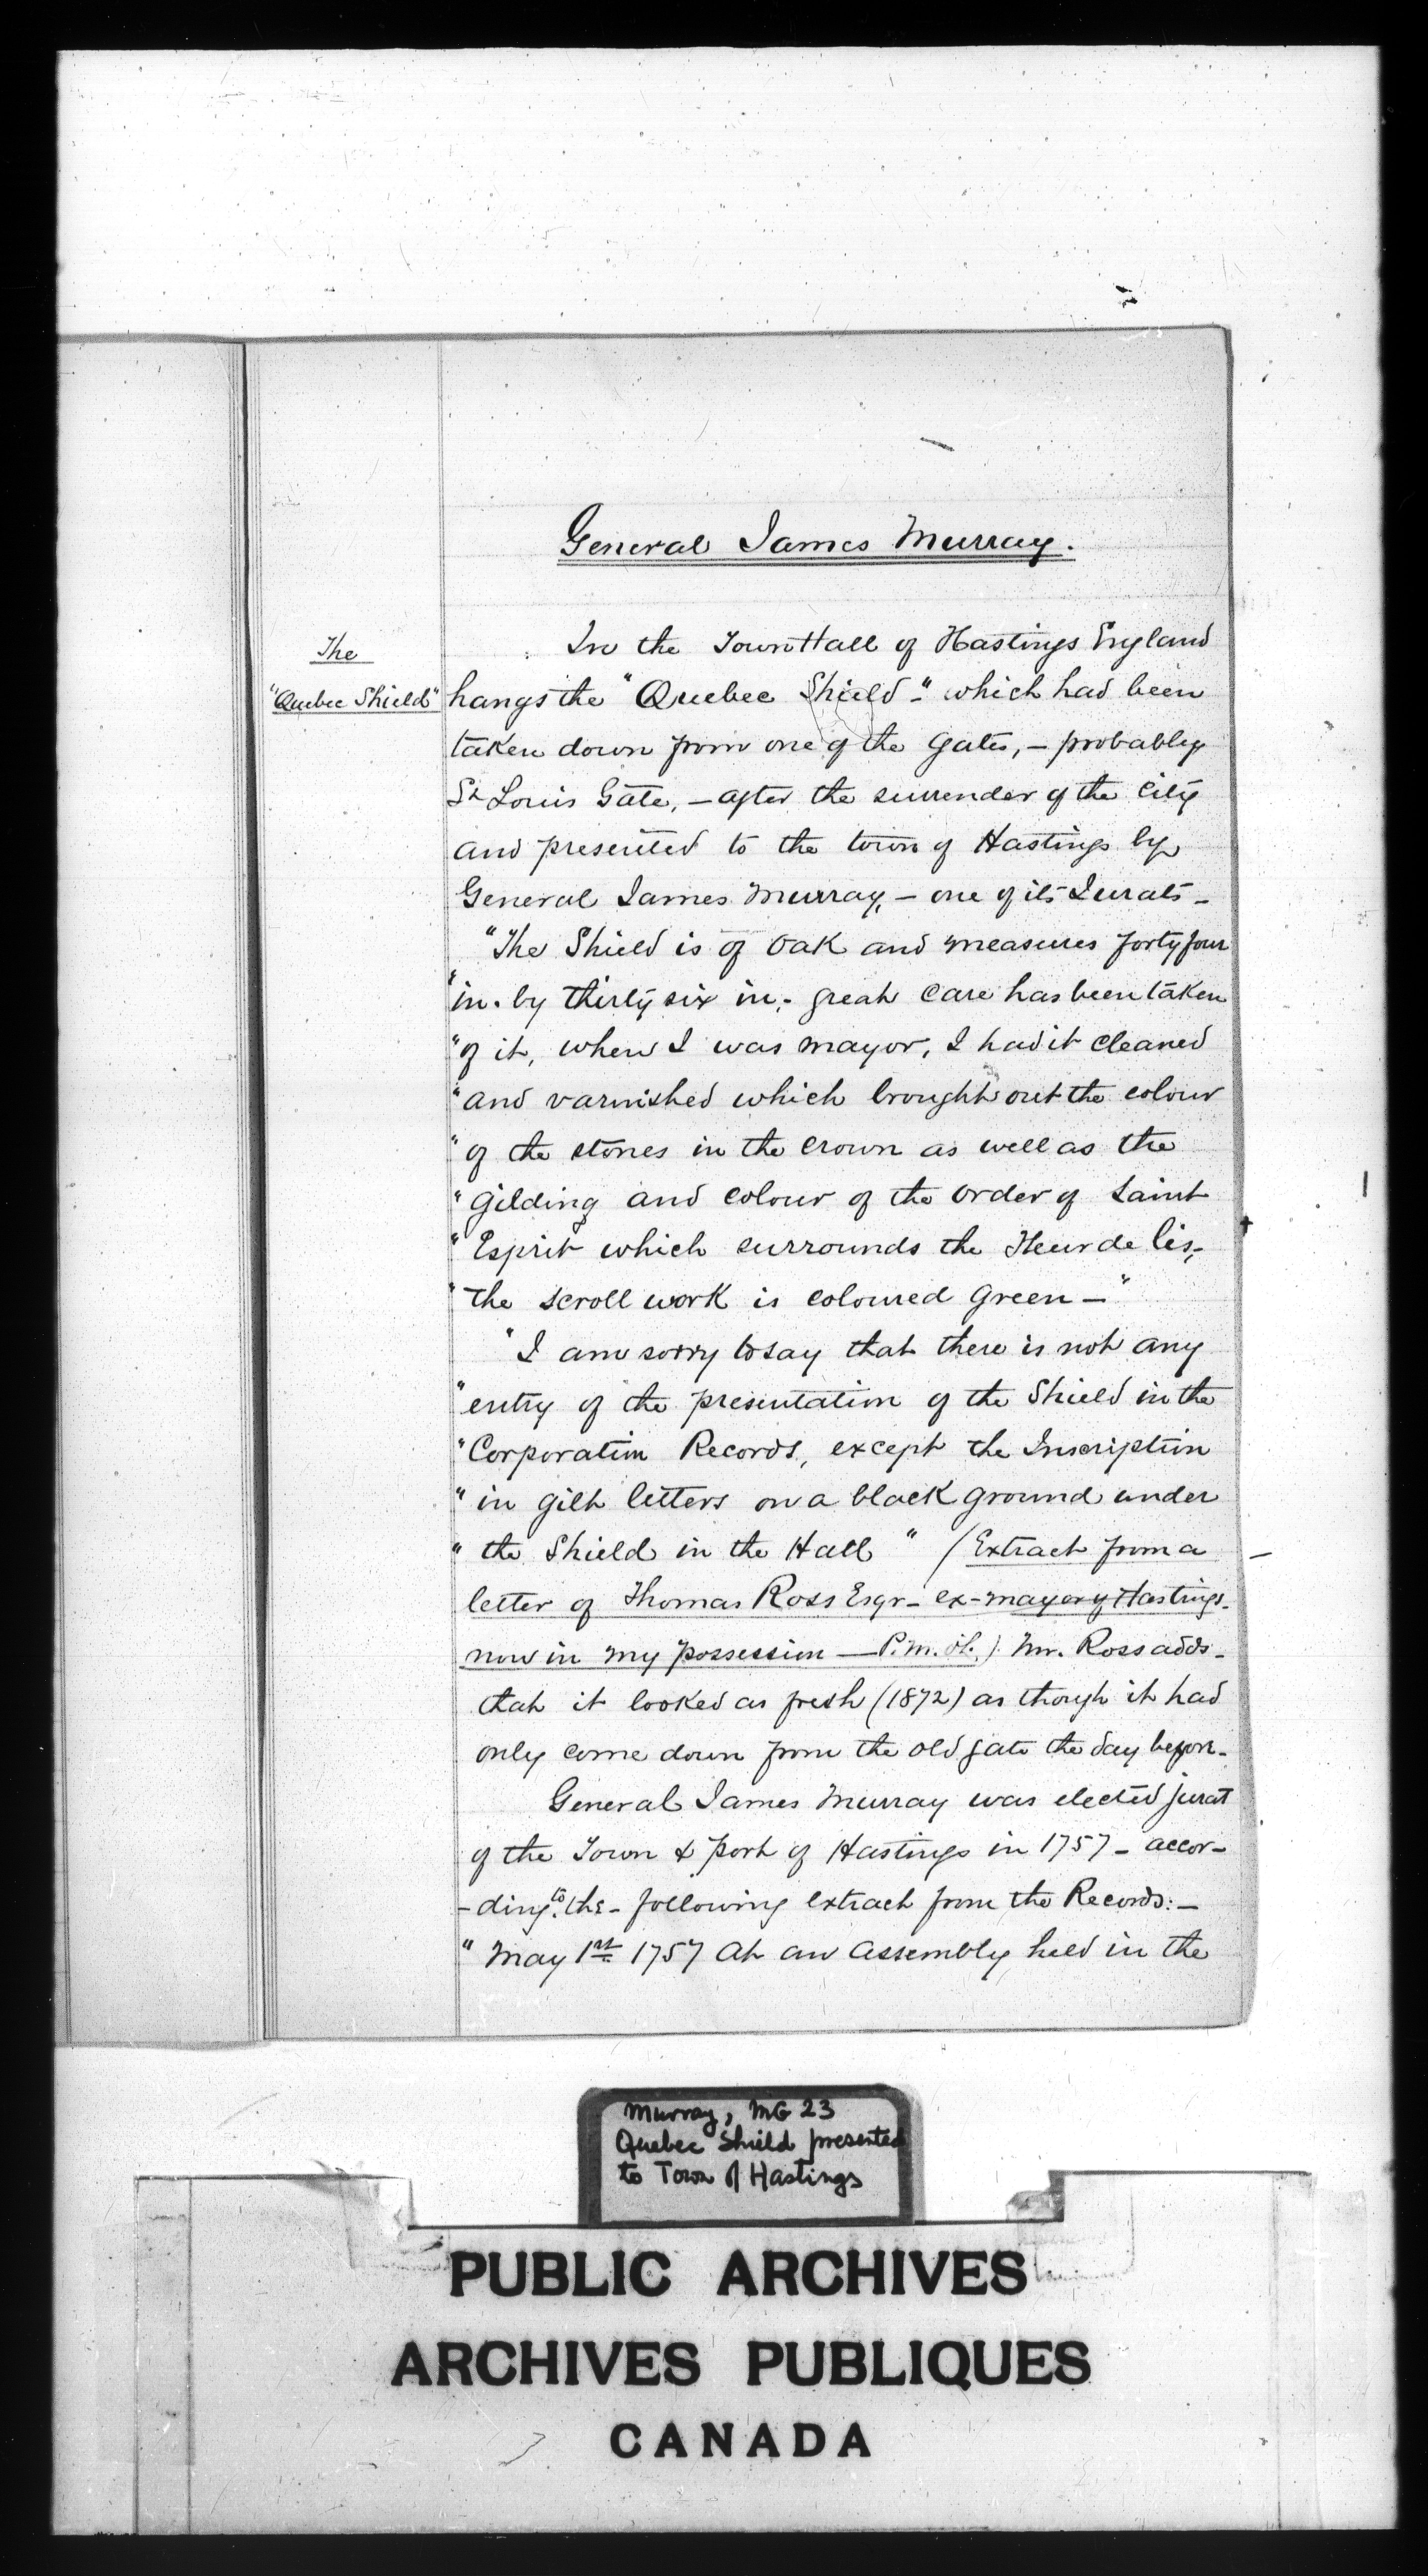 General James Murray.
The
"Quebec Shield"
In the Town Hall of Hastings England
hangs the "Quebec Shield-" which had been
taken down from one of the Gates, - probably
St Louis Gate, - after the surrender of the City
and presented to the town of Hastings by
General James Murray, - one of its Jurats -
"The Shield is of Oak and measures forty four
"in. by thirty six in,- great care has been taken
"of it, when I was mayor, I had it cleaned
"and varnished which brought out the colour
"of the stones in the Crown as well as the
"Gilding and colour of the Order of Saint
"Esprit which surrounds the Fleur de lis,-
"the scroll work is coloured Green - "
"I am sorry to say that there is not any
"entry of the presentation of the Shield in the
"Corporation Records, except the Inscription
"in gilt letters on a black ground under
"the Shield in the Hall " (Extract from a
letter of Thomas Ross Esqr - ex-mayor of Hastings -
now in my possession - P.M. ) Mr. Ross adds -
that it looked as fresh (1872) as though it had
only come down from the old gate the day before -
General James Murray was elected jurat
of the Town & Port of Hastings in 1757 - accor-
-ding to the - following extract from the Records: -
"May 1st 1757 At an Assembly held in the
Murray, MG 23
Quebec Shield presented
to Town of Hastings
PUBLIC ARCHIVES
ARCHIVES PUBLIQUES
CANADA